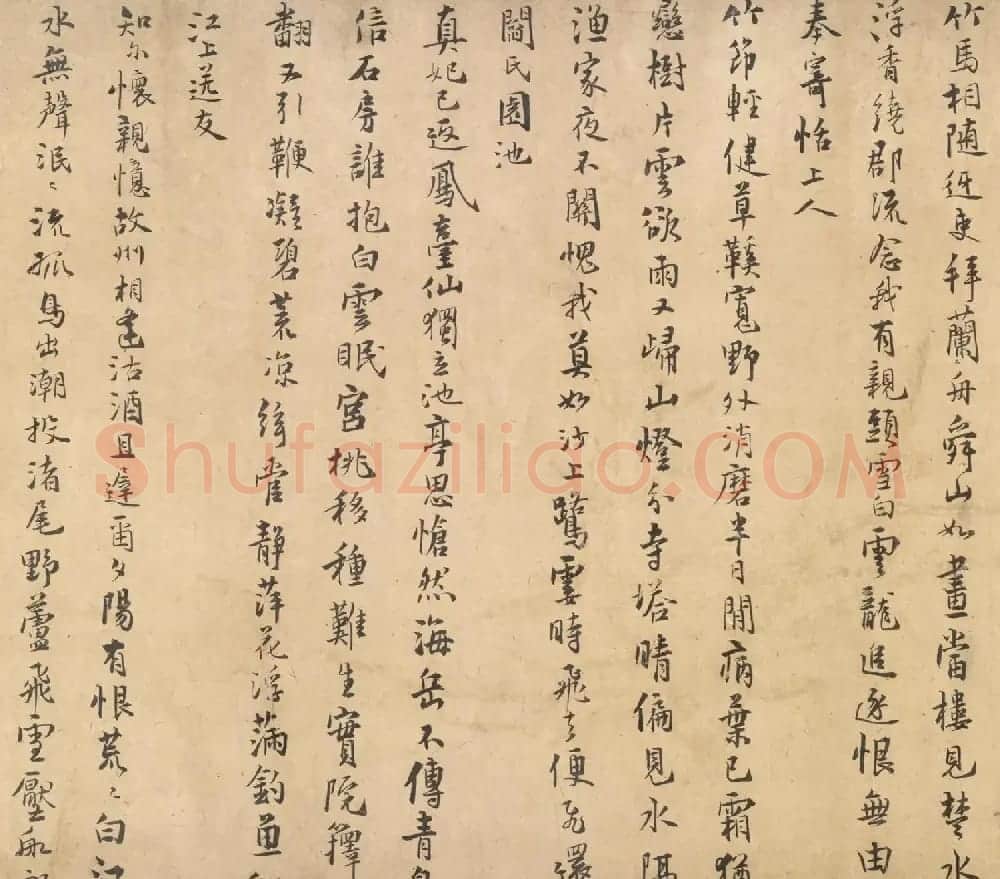 竹馬相随迓吏拜蘭舟舜山如畫當樓見楚水
浮香繞郡流念我有親頭雪白雲龍追逐恨無由
奉寄恬上人
竹節輕健草鞵寬野外消磨半日閒病葉已霜猶
戀樹片雲欲雨又歸山燈分寺塔晴偏見水隔
漁家夜不關愧我莫如沙上鷺霎時飛去便飛還
閻氏園池
真妃已返鳳臺仙獨立池亭思愴然海岳不傳青鳥
信石房誰抱白雲眠宮桃移種難生實院籜
翻又引鞭凝碧荒凉絃管靜萍花浮滿釣魚
江上送友
知尔懷親憶故州相逢沽酒且遲留夕陽有恨荒荒白江
水無聲泯泯流孤鳥出潮投渚尾野蘆飛雪壓船
Shufazilido.COM